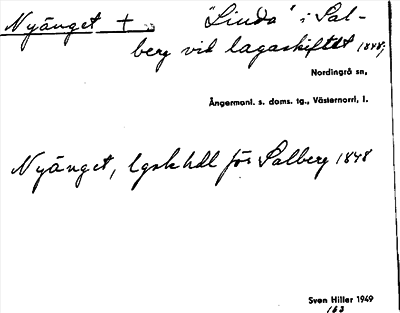 Nyänget + "Linda" i Sal-
berg vid lagaskiftet 1848;
Nordingrå sn,
Ångermanl. s. doms. tg., Västernorrl. l.
Nyänget, lgskhdl för Salberg 1848
Sven Hiller 1949
163